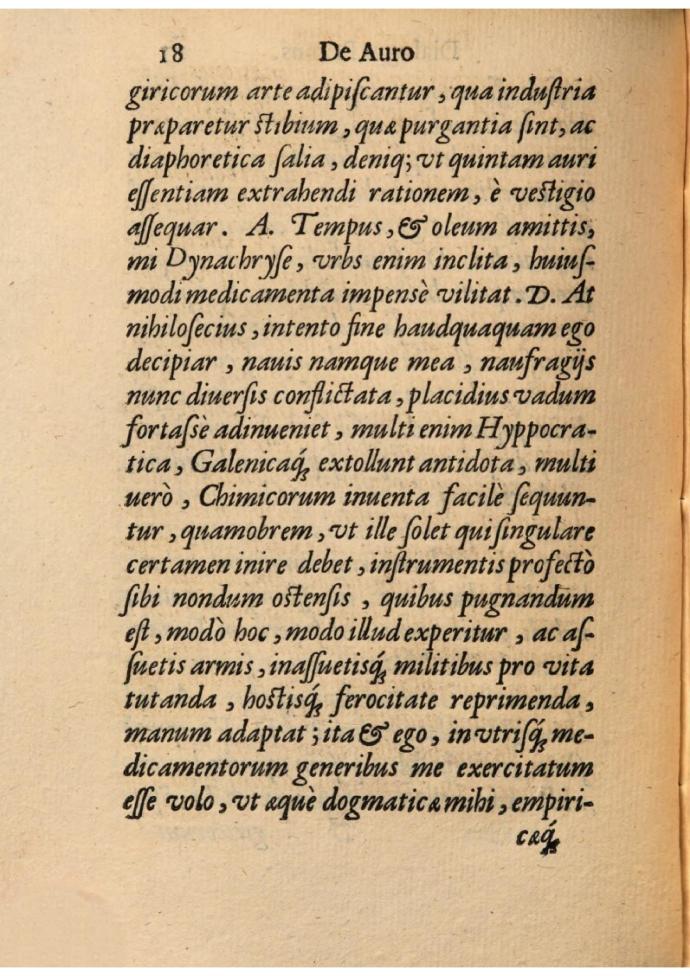 18 De Auro
giricorum arte adipiſcantur, qua induſtria
præparetur ſtibium, quæ purgantia ſint, ac
diaphoretica ſalia, deniq; vt quintam auri
eſſentiam extrahendi rationem, è veſtigio
aſſequar. A. Tempus, & oleum amittis,
mi Dynachryſe, vrbs enim inclita, huiuſ-
modi medicamenta impensè vilitat. D. At
nihiloſecius, intento fine haudquaquam ego
decipiar, nauis namque mea, naufragijs
nunc diuerſis conflictata, placidius vadum
fortaſsè adinueniet, multi enim Hyppocra-
tica, Galenicaq́; extollunt antidota, multi
uerò, Chimicorum inuenta facilè ſequun-
tur, quamobrem, vt ille ſolet qui ſingulare
certamen inire debet, inſtrumentis profectò
ſibi nondum oſtenſis, quibus pugnandum
eſt, modò hoc, modo illud experitur, ac aſ-
ſuetis armis, inaſſuetisq́; militibus pro vita
tutanda, hoſtisq́; ferocitate reprimenda,
manum adaptat; ita & ego, in vtriſq́; me-
dicamentorum generibus me exercitatum
eſſe volo, vt æquè dogmaticæ mihi, empiri-
cæq́;